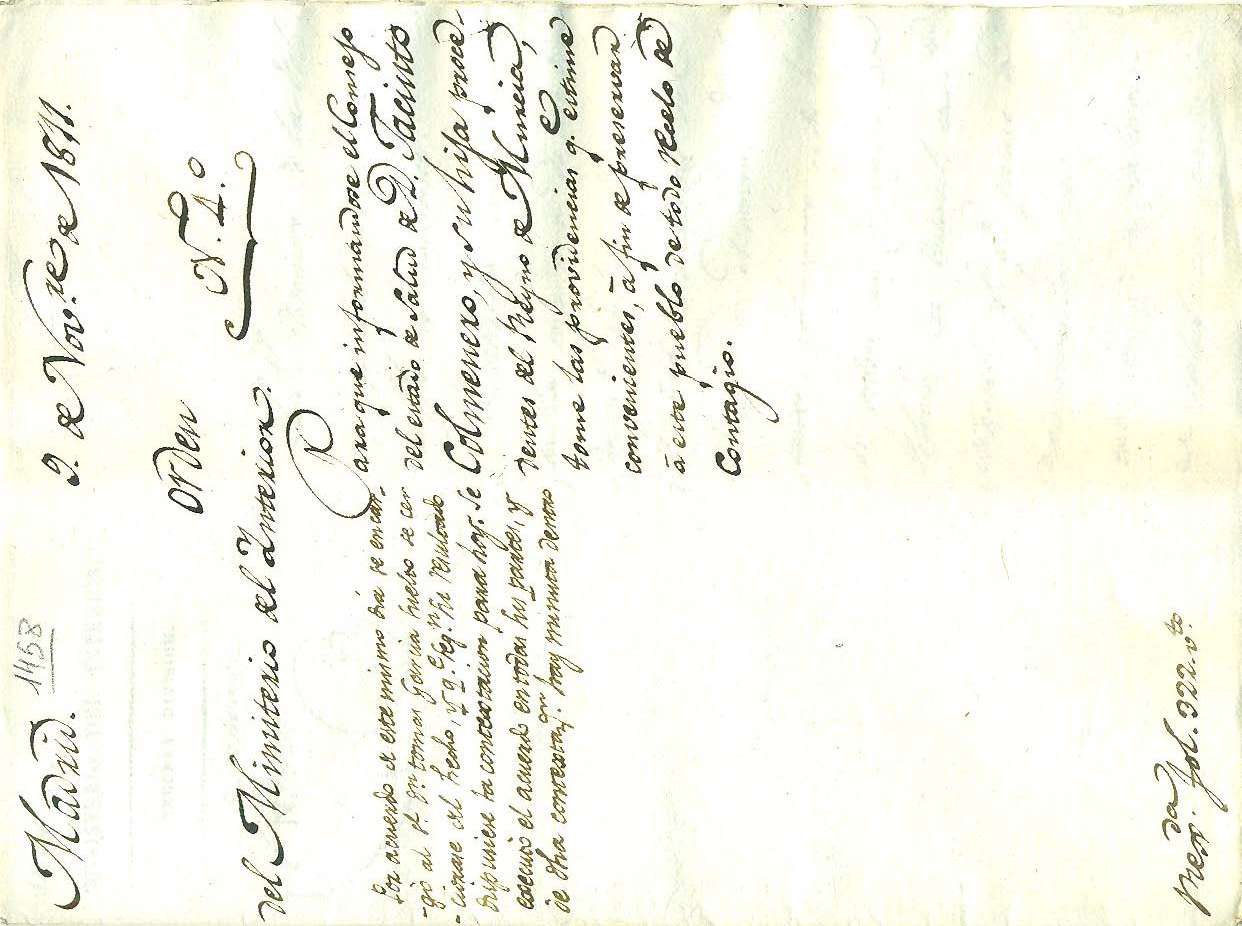 Madrid. 1458 9. de Nov.re de 1811.
Orden
del Ministerio del Ynterior. N.º 4.º
Para que informandose el Consejo
del estado de Salud de D. Jacinto
Colmenero, y su hija proce-
dentes del Reyno de Murcia,
tome las providencias q.e estime
convenientes, á fin de preservar
á este pueblo de todo recelo de
Contagio.
Por acuerdo de este mismo dia se encar-
gó al S.r D.n tomas Garcia hubiese de cer
ciorarse del hecho, y q.e seg.n su resultado
dispusiese la contestacion para hoy. Se
executó el acuerdo en todas sus partes, y
de dha contestaz.on hay minuta dentro
Reg.da fol. 322. v.to